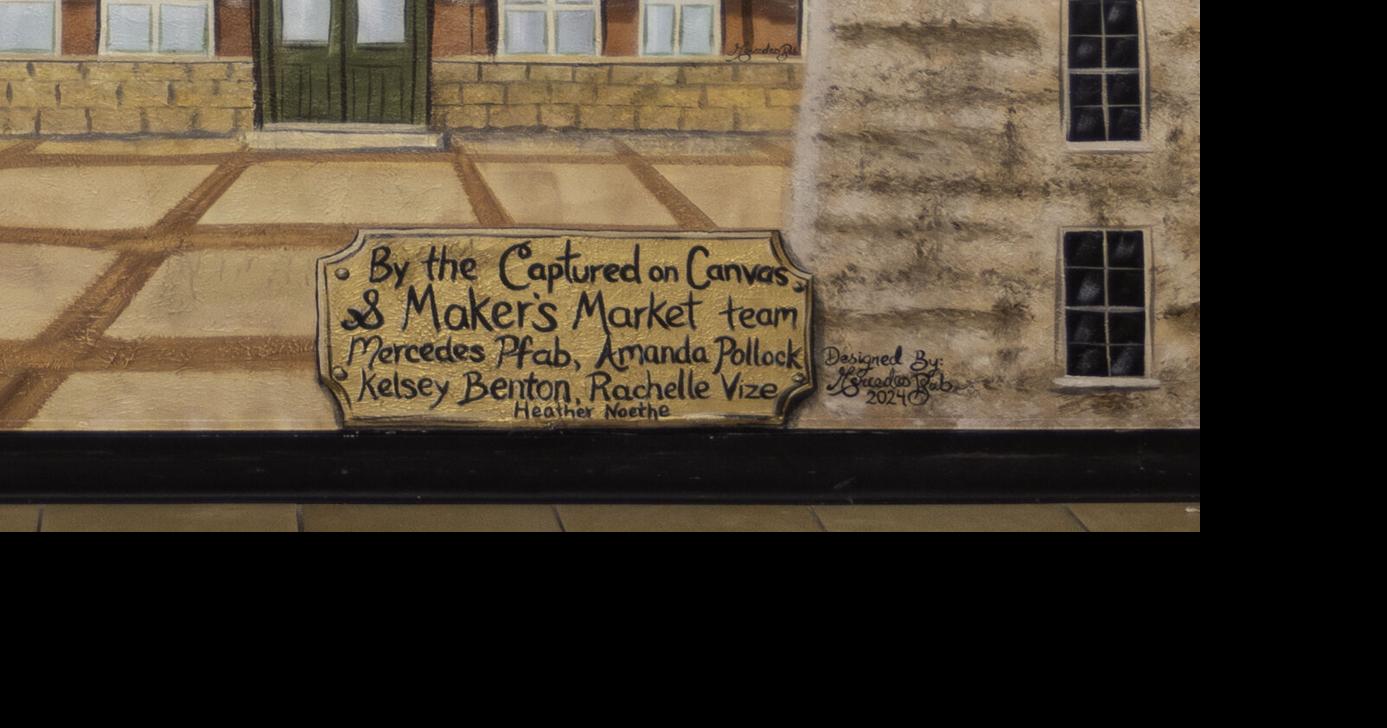 By the Captured on Canvas
& Maker's Market team
Mercedes Pfab, Amanda Pollock
Kelsey Benton, Rachelle Vize
Heather Noethe
Designed By:
Mercedes
2024